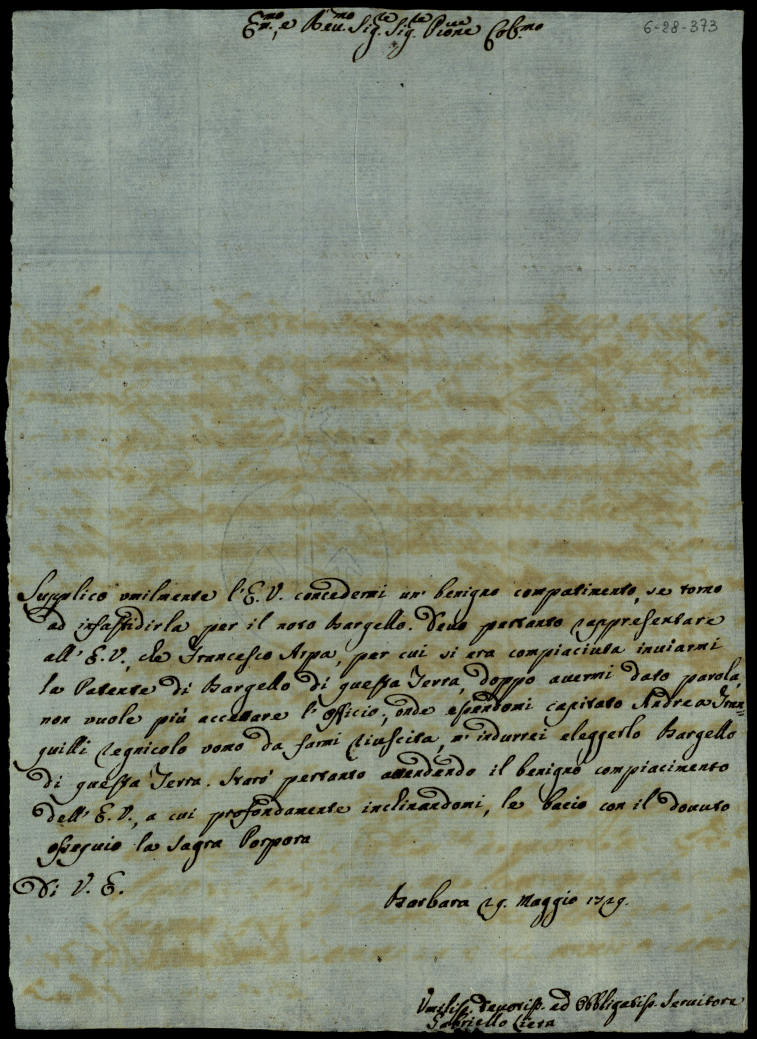 Em.mo, e Reu.mo Sig.re Sig.re P'rone Col.mo
6-28-373
Supplico umilmente l'E.V. concedermi un benigno compatimento, se torno
ad infastidirla per il noto Bargello. Deuo pertanto rappresentare
all'E.V., che Francesco Arpa, per cui si era compiaciuta inuiarmi
la Patente di Bargello di questa Terra, doppo auermi dato parola,
non vuole più accettare l'Officio, onde essendomi capitato Andrea Tran=
quilli regnicolo vomo da farmi riuscita, m'indurrei eleggerlo Bargello
di questa Terra. Starò pertanto attendendo il benigno compiacimento
dell'E.V., a cui profondamente inclinandomi, le bacio con il douuto
ossequio la Sagra Porpora
Di V. E.
Barbara 29. Maggio 1729.
Vmiliss. Deuotiss. ed Obbligatiss. Seruitore
Gabriello